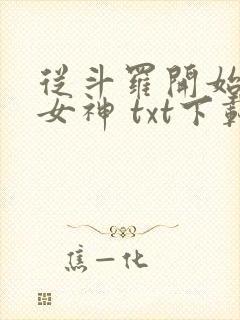 從斗羅開始
女神 txt下載
焦一化